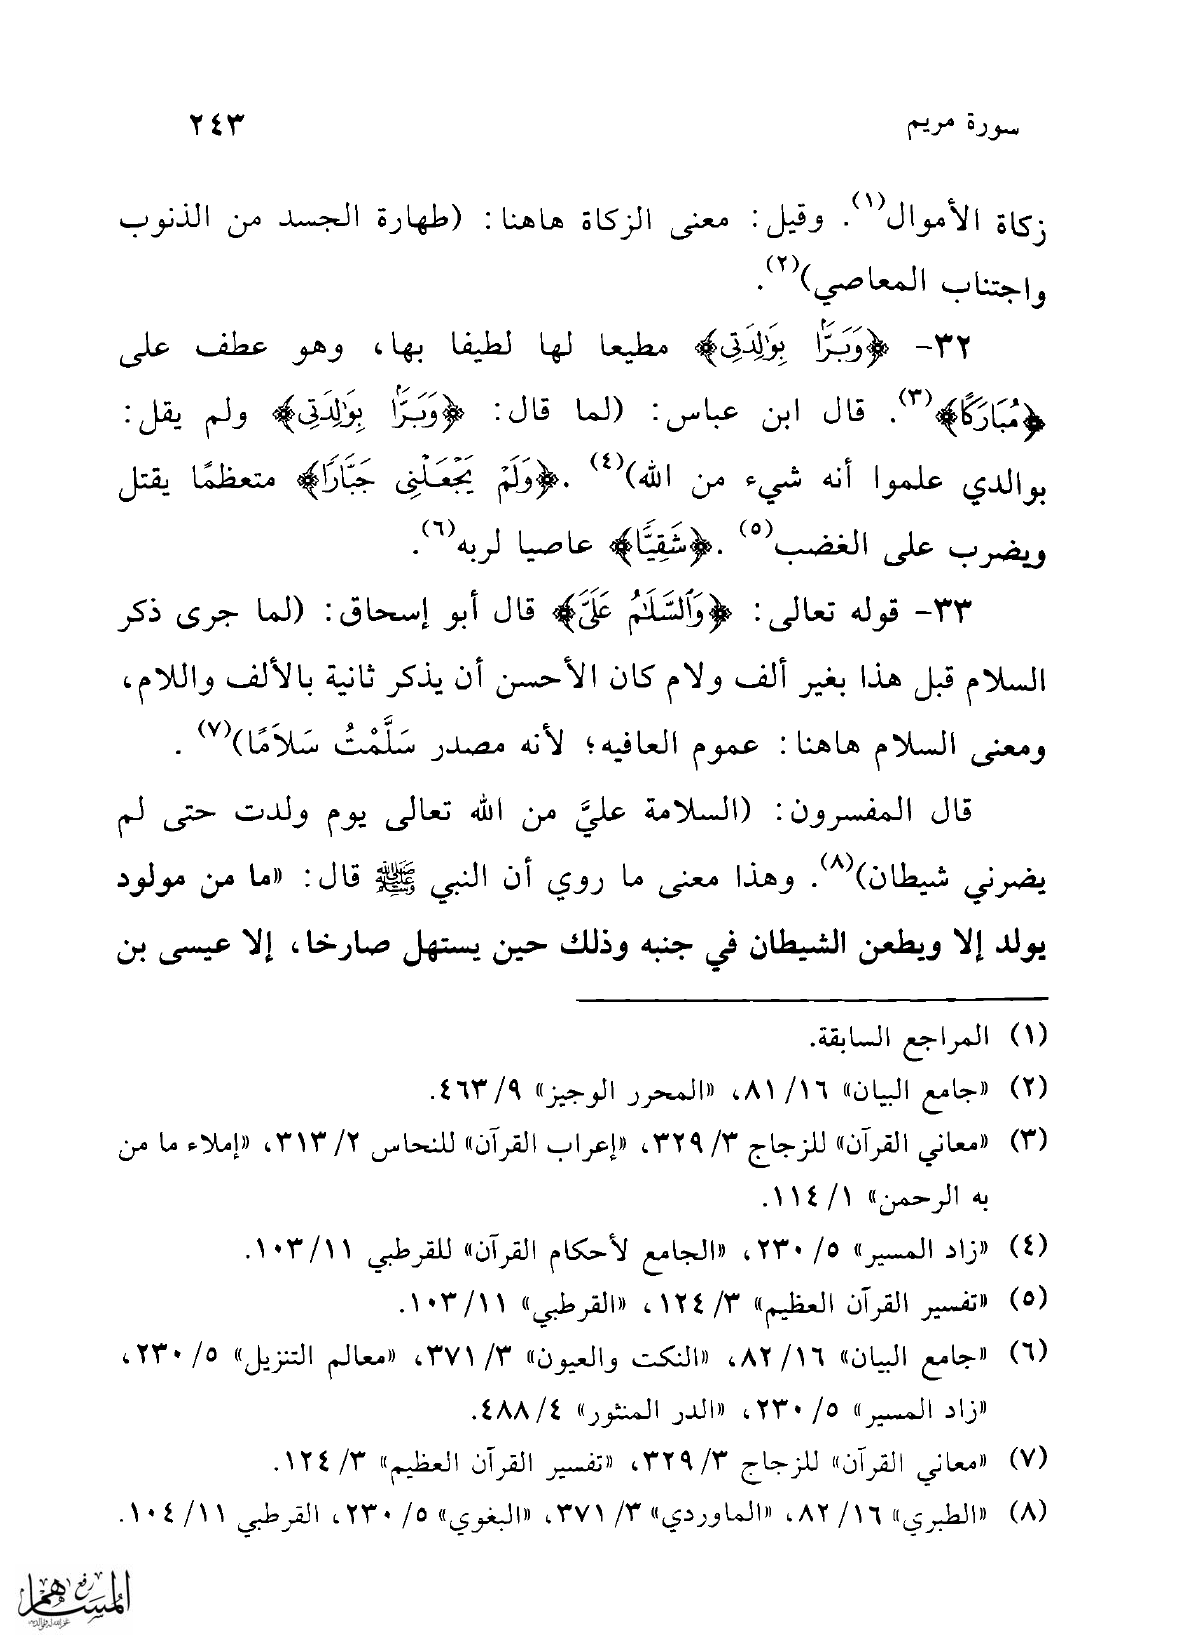 سورة مريم ٢٤٣
زكاة الأموال(١). وقيل: معنى الزكاة هاهنا: (طهارة الجسد من الذنوب
واجتناب المعاصي)(٢).
٣٢- ﴿وَبَرًّا بِوَالِدَتِي﴾ مطيعا لها لطيفا بها، وهو عطف على
﴿مُبَارَكًا﴾(٣). قال ابن عباس: (لما قال: ﴿وَبَرًّا بِوَالِدَتِي﴾ ولم يقل:
بوالدي علموا أنه شيء من الله)(٤). ﴿وَلَمْ يَجْعَلْنِى جَبَّارًا﴾ متعظمًا يقتل
ويضرب على الغضب(٥). ﴿شَقِيًّا﴾ عاصيا لربه(٦).
٣٣- قوله تعالى: ﴿وَالسَّلَامُ عَلَىَّ﴾ قال أبو إسحاق: (لما جرى ذكر
السلام قبل هذا بغير ألف ولام كان الأحسن أن يذكر ثانية بالألف واللام،
ومعنى السلام هاهنا: عموم العافيه؛ لأنه مصدر سَلَّمْتُ سَلاَمًا)(٧) .
قال المفسرون: (السلامة عليَّ من الله تعالى يوم ولدت حتى لم
يضرني شيطان)(٨). وهذا معنى ما روي أن النبي ﷺ قال: «ما من مولود
يولد إلا ويطعن الشيطان في جنبه وذلك حين يستهل صارخا، إلا عيسى بن
(١) المراجع السابقة.
(٢) «جامع البيان» ١٦/ ٨١، «المحرر الوجيز» ٩/ ٤٦٣.
(٣) «معاني القرآن» للزجاج ٣/ ٣٢٩، «إعراب القرآن» للنحاس ٢/ ٣١٣، «إملاء ما من
به الرحمن» ١/ ١١٤.
(٤) «زاد المسير» ٥/ ٢٣٠، «الجامع لأحكام القرآن» للقرطبي ١١/ ١٠٣.
(٥) «تفسير القرآن العظيم» ٣/ ١٢٤، «القرطبي» ١١/ ١٠٣.
(٦) «جامع البيان» ١٦/ ٨٢، «النكت والعيون» ٣/ ٣٧١، «معالم التنزيل» ٥/ ٢٣٠،
«زاد المسير» ٥/ ٢٣٠، «الدر المنثور» ٤/ ٤٨٨.
(٧) «معاني القرآن» للزجاج ٣/ ٣٢٩، «تفسير القرآن العظيم» ٣/ ١٢٤.
(٨) «الطبري» ١٦/ ٨٢، «الماوردي» ٣/ ٣٧١، «البغوي» ٥/ ٢٣٠، القرطبي ١١/ ١٠٤.
رفع
المساهم